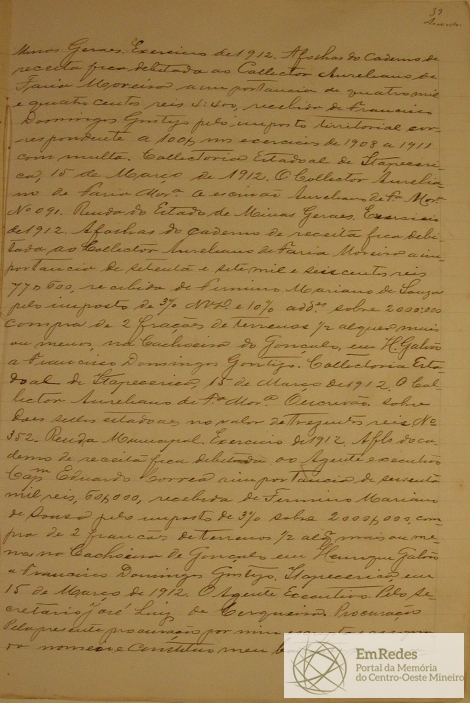 33
Minas Geraes. Exercicio de 1912. A folhas do caderno de
receita fica debitada ao Collector Aureliano de
Faria Moreira a importancia de quatro mil
e quatro centos reis 4:400, recebido de Francisco
Domingos Gontijo pelo imposto territorial cor-
respondente a 100%, no exercicio de 1908 a 1911
com multa. Collectoria Estadoal de Itapeceri-
ca, 15 de Março de 1912. O Collector Aurelia-
no de Faria Mor.ª O escrivão Aureliano de F.ª Mor.ª
Nº 091. Renda do Estado de Minas Geraes. Exercicio
de 1912. A folhas do caderno de receita fica debi-
tada ao Collector Aureliano de Faria Moreira a im-
portancia de setenta e sete mil e seis centos reis
77#600, recebida de Firmino Mariano de Souza
pelo imposto de 3% e 10% add.es sobre 2:000:000
compra de 2 frações de terrenos 1/2 alqueʳ mais
ou menos, na Cachoeira do Gonçalo, em H. Galvão
a Francisco Domingos Gontijo. Collectoria Esta-
doal de Itapecerica, 15 de Março de 1912. O Col-
lector Aureliano de F.ª Mor.ª O escrivão. sobre
dois sellos estadoaes no valor de trezentos reis Nº
352. Renda Municipal. Exercicio de 1912. A fls do ca-
derno de receita fica debitada ao Agente executivo
Cap.m Eduardo Correa a importancia de sessenta
mil reis, 60#000, recebida de Firmino Mariano
de Souza pelo imposto de 3% sobre 2:000#000, com-
pra de 2 francas de terrenos 1/2 alqʳ mais ou me-
nos na Cachoeira do Gonçalo em Henrique Galvão
a Francisco Domingos Gontijo. Itapecerica, em
15 de Março de 1912. O Agente Executivo Pelo Se-
cretario José Luiz de Cerqueira. Procuração
Pela presente procuração por mim
do nomeio e constituo meu
EmRedes
Portal da Memória
do Centro-Oeste Mineiro